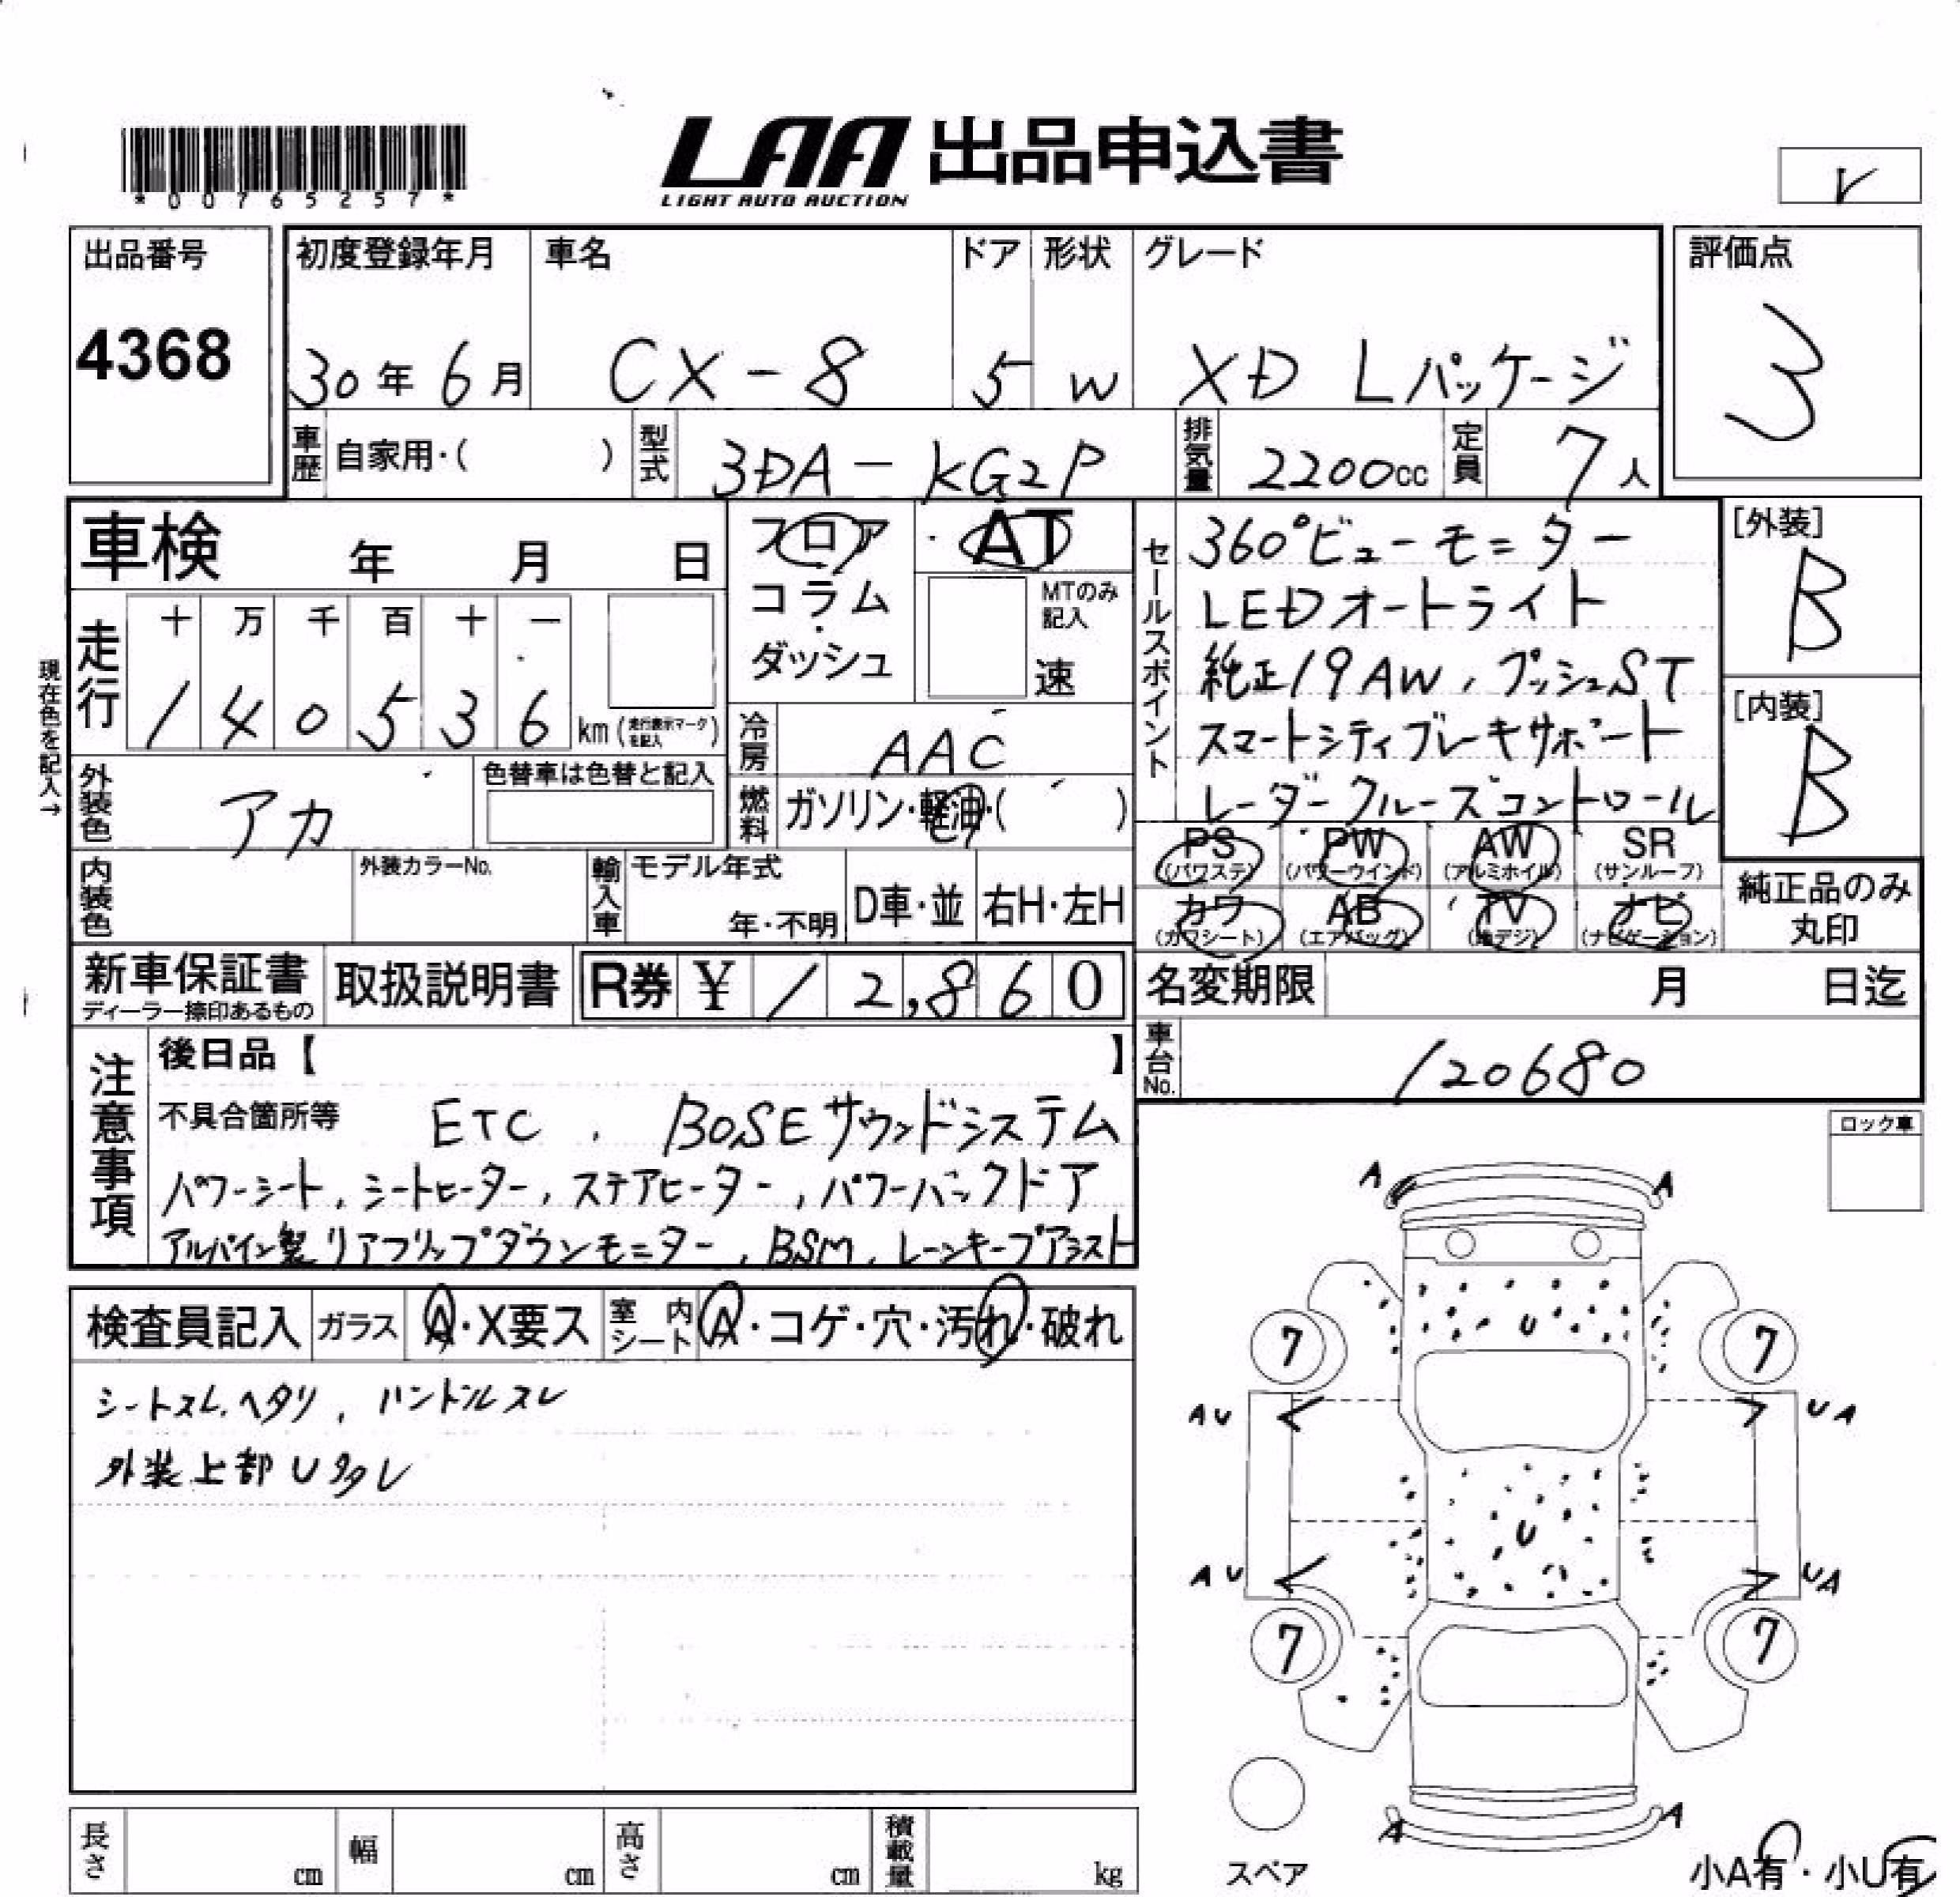 *00765257*
LAA 出品申込書
LIGHT AUTO AUCTION
出品番号
4368
初度登録年月
30年6月
車名
CX-8
ドア
5
形状
W
グレード
XD Lパッケージ
評価点
3
車歴 自家用・( )
型式 3DA-KG2P
排気量 2200cc
定員 7人
車検 年 月 日
フロア
コラム
・
ダッシュ
・AT
MTのみ記入
速
セールスポイント
360°ビューモニター
LEDオートライト
純正19AW, プッシュST
スマートシティブレーキサポート
レーダークルーズコントロール
[外装]
B
[内装]
B
現在色を記入→
走行
十 万 千 百 十 一
1 4 0 5 3 6 km(走行表示マークを記入)
冷房 AAC
外装色 アカ
色替車は色替と記入
燃料 ガソリン・軽油・( )
PS (パワステ)
PW (パワーウインド)
AW (アルミホイル)
SR (サンルーフ)
カワ (カワシート)
AB (エアバッグ)
TV (地デジ)
ナビ (ナビゲーション)
純正品のみ
丸印
内装色
外装カラーNo.
輸入車
モデル年式
年・不明
D車・並
右H・左H
新車保証書
ディーラー捺印あるもの
取扱説明書
R券 ¥ 12,860
名変期限 月 日迄
車台No. 120680
注意事項
後日品【 】
不具合箇所等 ETC , BOSEサウンドシステム
パワーシート, シートヒーター, ステアヒーター, パワーバックドア
アルパイン製リアフリップダウンモニター, BSM, レーンキープアシスト
ロック車
検査員記入
ガラス A・X要ス
室内シート A・コゲ・穴・汚れ・破れ
シートスレ, ヘタリ, ハンドルスレ
外装上部Uタタレ
A A
U
7 7
AU UA
U
AU UA
7 7
A A
スペア
小A有・小U有
長さ cm
幅 cm
高さ cm
積載量 kg